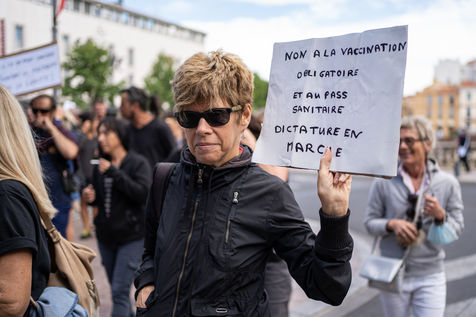 NON A LA VACCINATION
OBLIGATOIRE
ET AU PASS
SANITAIRE
DICTATURE EN
MARCHE